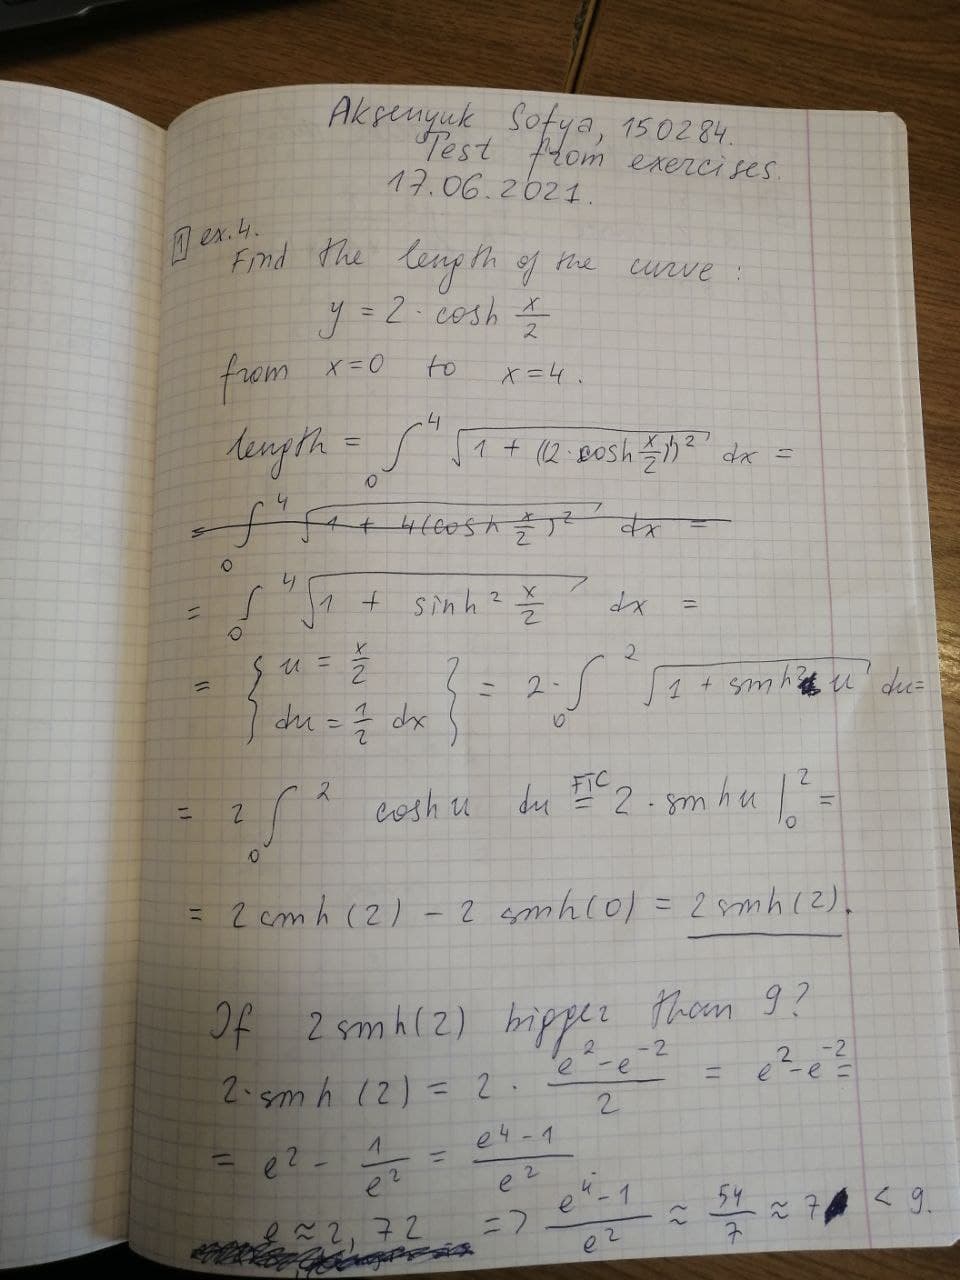 Aksenyuk Sofya, 150284.
Test from exercises.
17.06.2021.
1 ex.4.
Find the length of the curve:
y = 2 · cosh x/2
from x=0 to x=4.
length = ∫₀⁴ √(1 + ((2·cosh x/2)')²) dx =
= ∫₀⁴ √(1 + 4(cosh x/2)²) dx =
= ∫₀⁴ √(1 + sinh² x/2) dx =
= { u = x/2
du = 1/2 dx } = 2·∫₀² √(1 + sinh² u) du =
= 2 ∫₀² cosh u du FTC = 2 · sinh u |₀² =
= 2 sinh(2) - 2 sinh(0) = 2 sinh(2).
If 2 sinh(2) bigger than 9?
2·sinh(2) = 2 · (e²-e⁻²)/2 = e²-e⁻² =
= e² - 1/e² = (e⁴-1)/e²
e ≈ 2,72 => (e⁴-1)/e² ≈ 54/7 ≈ 7 < 9.